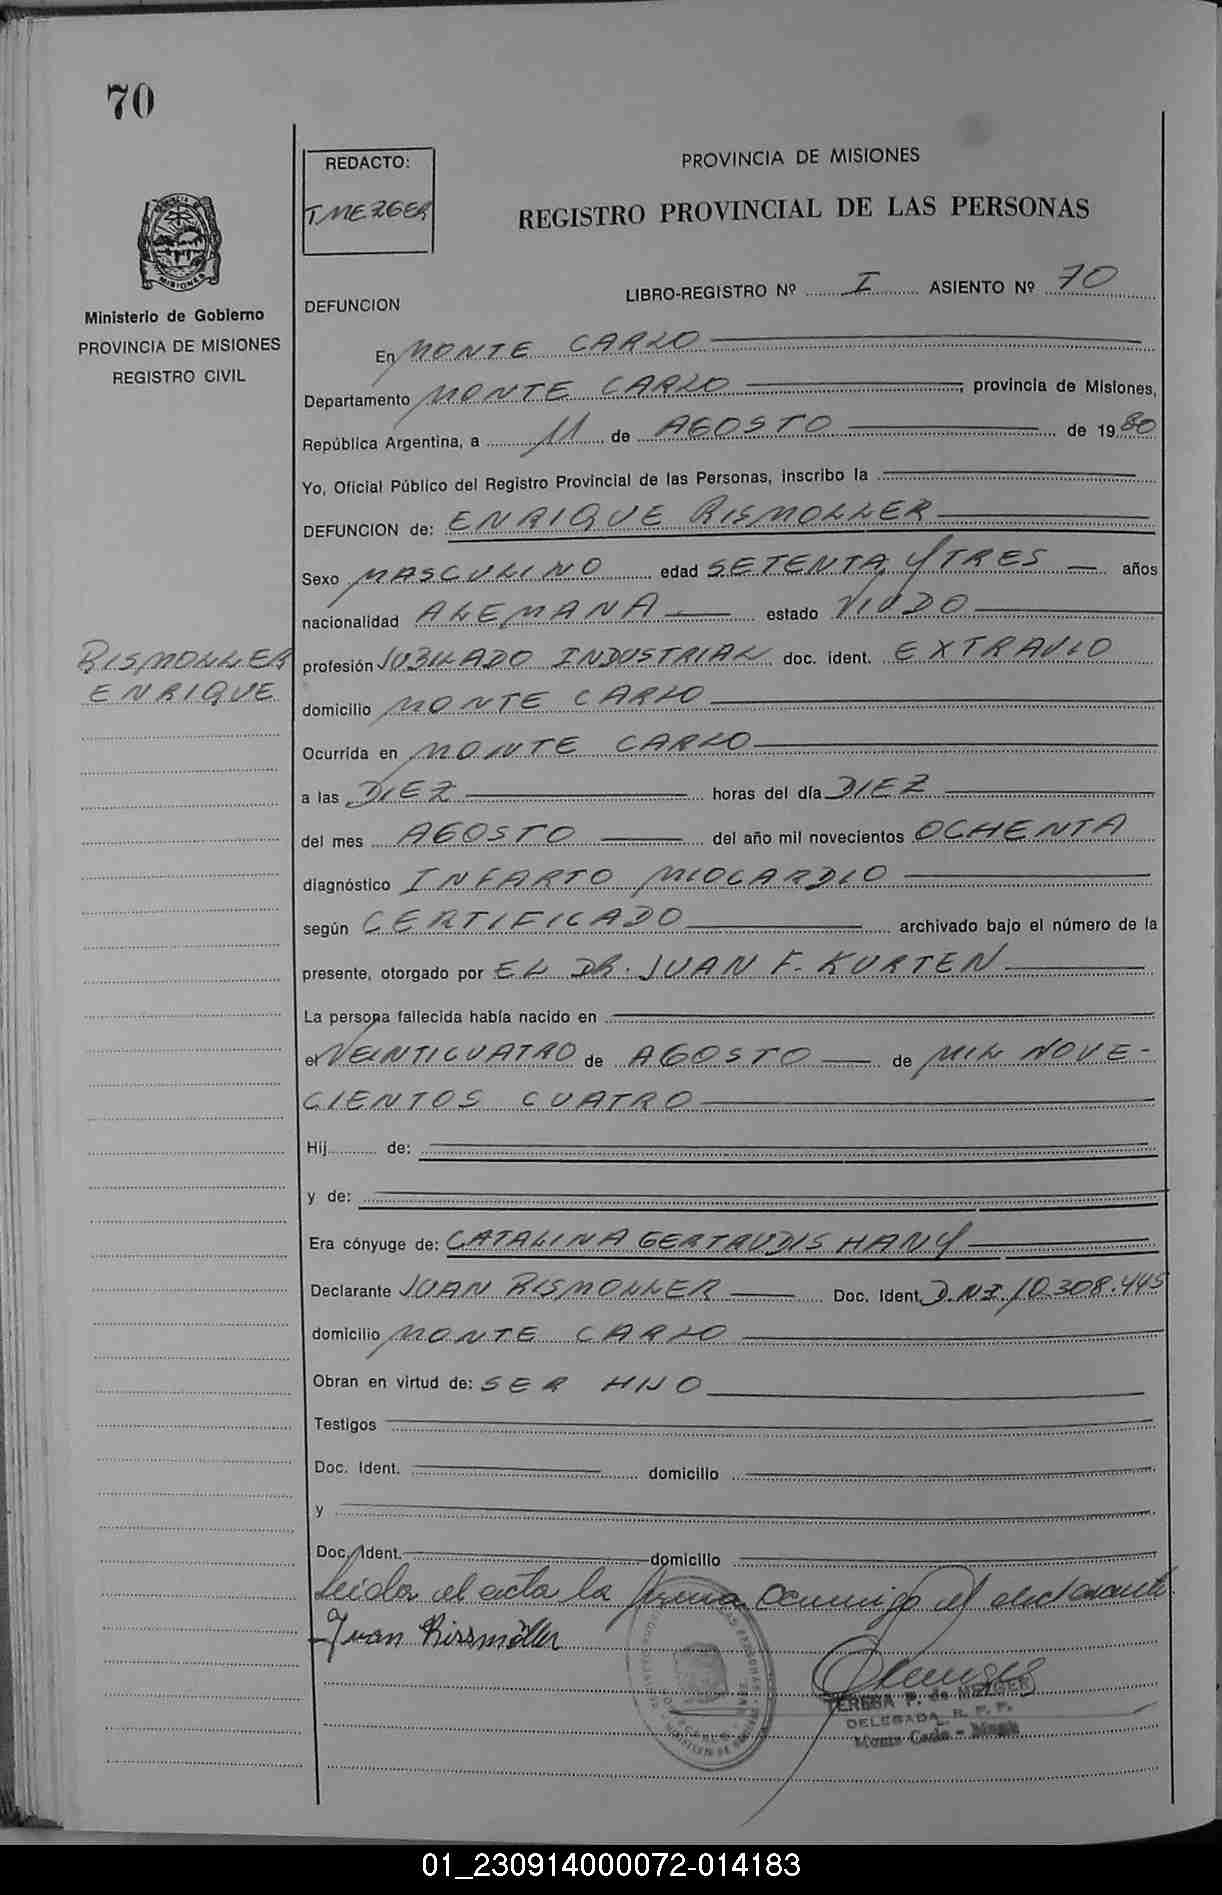 70
REDACTO:
T. MEZGER
PROVINCIA DE MISIONES
REGISTRO PROVINCIAL DE LAS PERSONAS
Ministerio de Gobierno
PROVINCIA DE MISIONES
REGISTRO CIVIL
DEFUNCION
LIBRO-REGISTRO Nº I ASIENTO Nº 70
En MONTE CARLO
Departamento MONTE CARLO, provincia de Misiones,
República Argentina, a 11 de AGOSTO de 1980
Yo, Oficial Público del Registro Provincial de las Personas, inscribo la
DEFUNCION de: ENRIQUE RISMOLLER
Sexo MASCULINO edad SETENTA Y TRES años
nacionalidad ALEMANA estado VIUDO
RISMOLLER
ENRIQUE
profesión JUBILADO INDUSTRIAL doc. ident. EXTRAVIO
domicilio MONTE CARLO
Ocurrida en MONTE CARLO
a las DIEZ horas del día DIEZ
del mes AGOSTO del año mil novecientos OCHENTA
diagnóstico INFARTO MIOCARDIO
según CERTIFICADO archivado bajo el número de la
presente, otorgado por EL DR. JUAN F. KURTEN
La persona fallecida había nacido en
el VEINTICUATRO de AGOSTO de MIL NOVE-
CIENTOS CUATRO
Hij de:
y de:
Era cónyuge de: CATALINA GERTRUDIS HANY
Declarante JUAN RISMOLLER Doc. Ident. D.N.I. 10.308.445
domicilio MONTE CARLO
Obran en virtud de: SER HIJO
Testigos
Doc. Ident. domicilio
y
Doc. Ident. domicilio
Leida el acta la firma conmigo el declarante.
Juan Rissmöller
TERESA P. de MEZGER
DELEGADA R. P. P.
Monte Carlo - Mnes
01_230914000072-014183